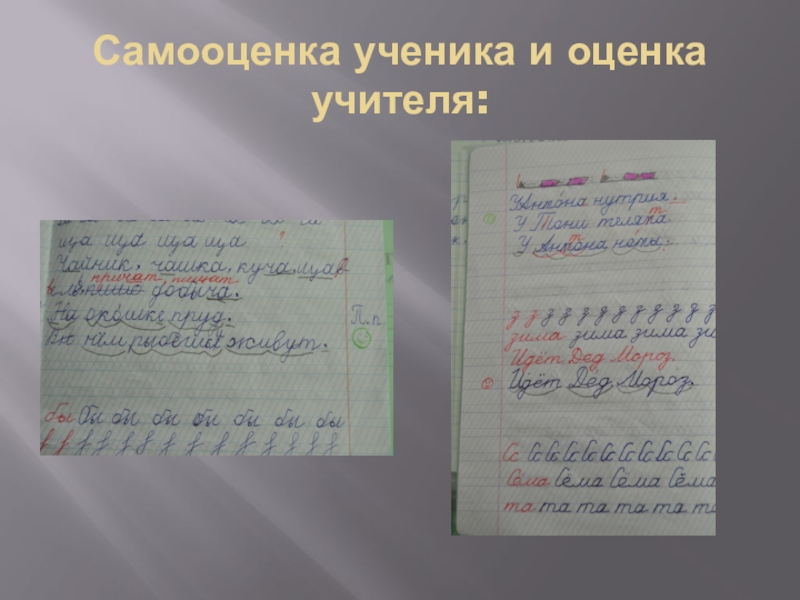 Самооценка ученика и оценка
учителя:
ща ща ща ща
Чайник, чашка, куча, щав
причат пищат
добыча.
На окошке пруд.
В нём рыбёшки живут.
П.п
бы бы бы бы бы бы бы бы
У Антона нутрия.
У Тони телята
У Антона ноты.
з з з з з з з з з з з з
зима зима зима зи
Идёт Дед Мороз
Идёт Дед Мороз.
Сс Сс Сс Сс Сс Сс Сс Сс Сс
Сёма Сёма Сёма Сёма
та та та та та та